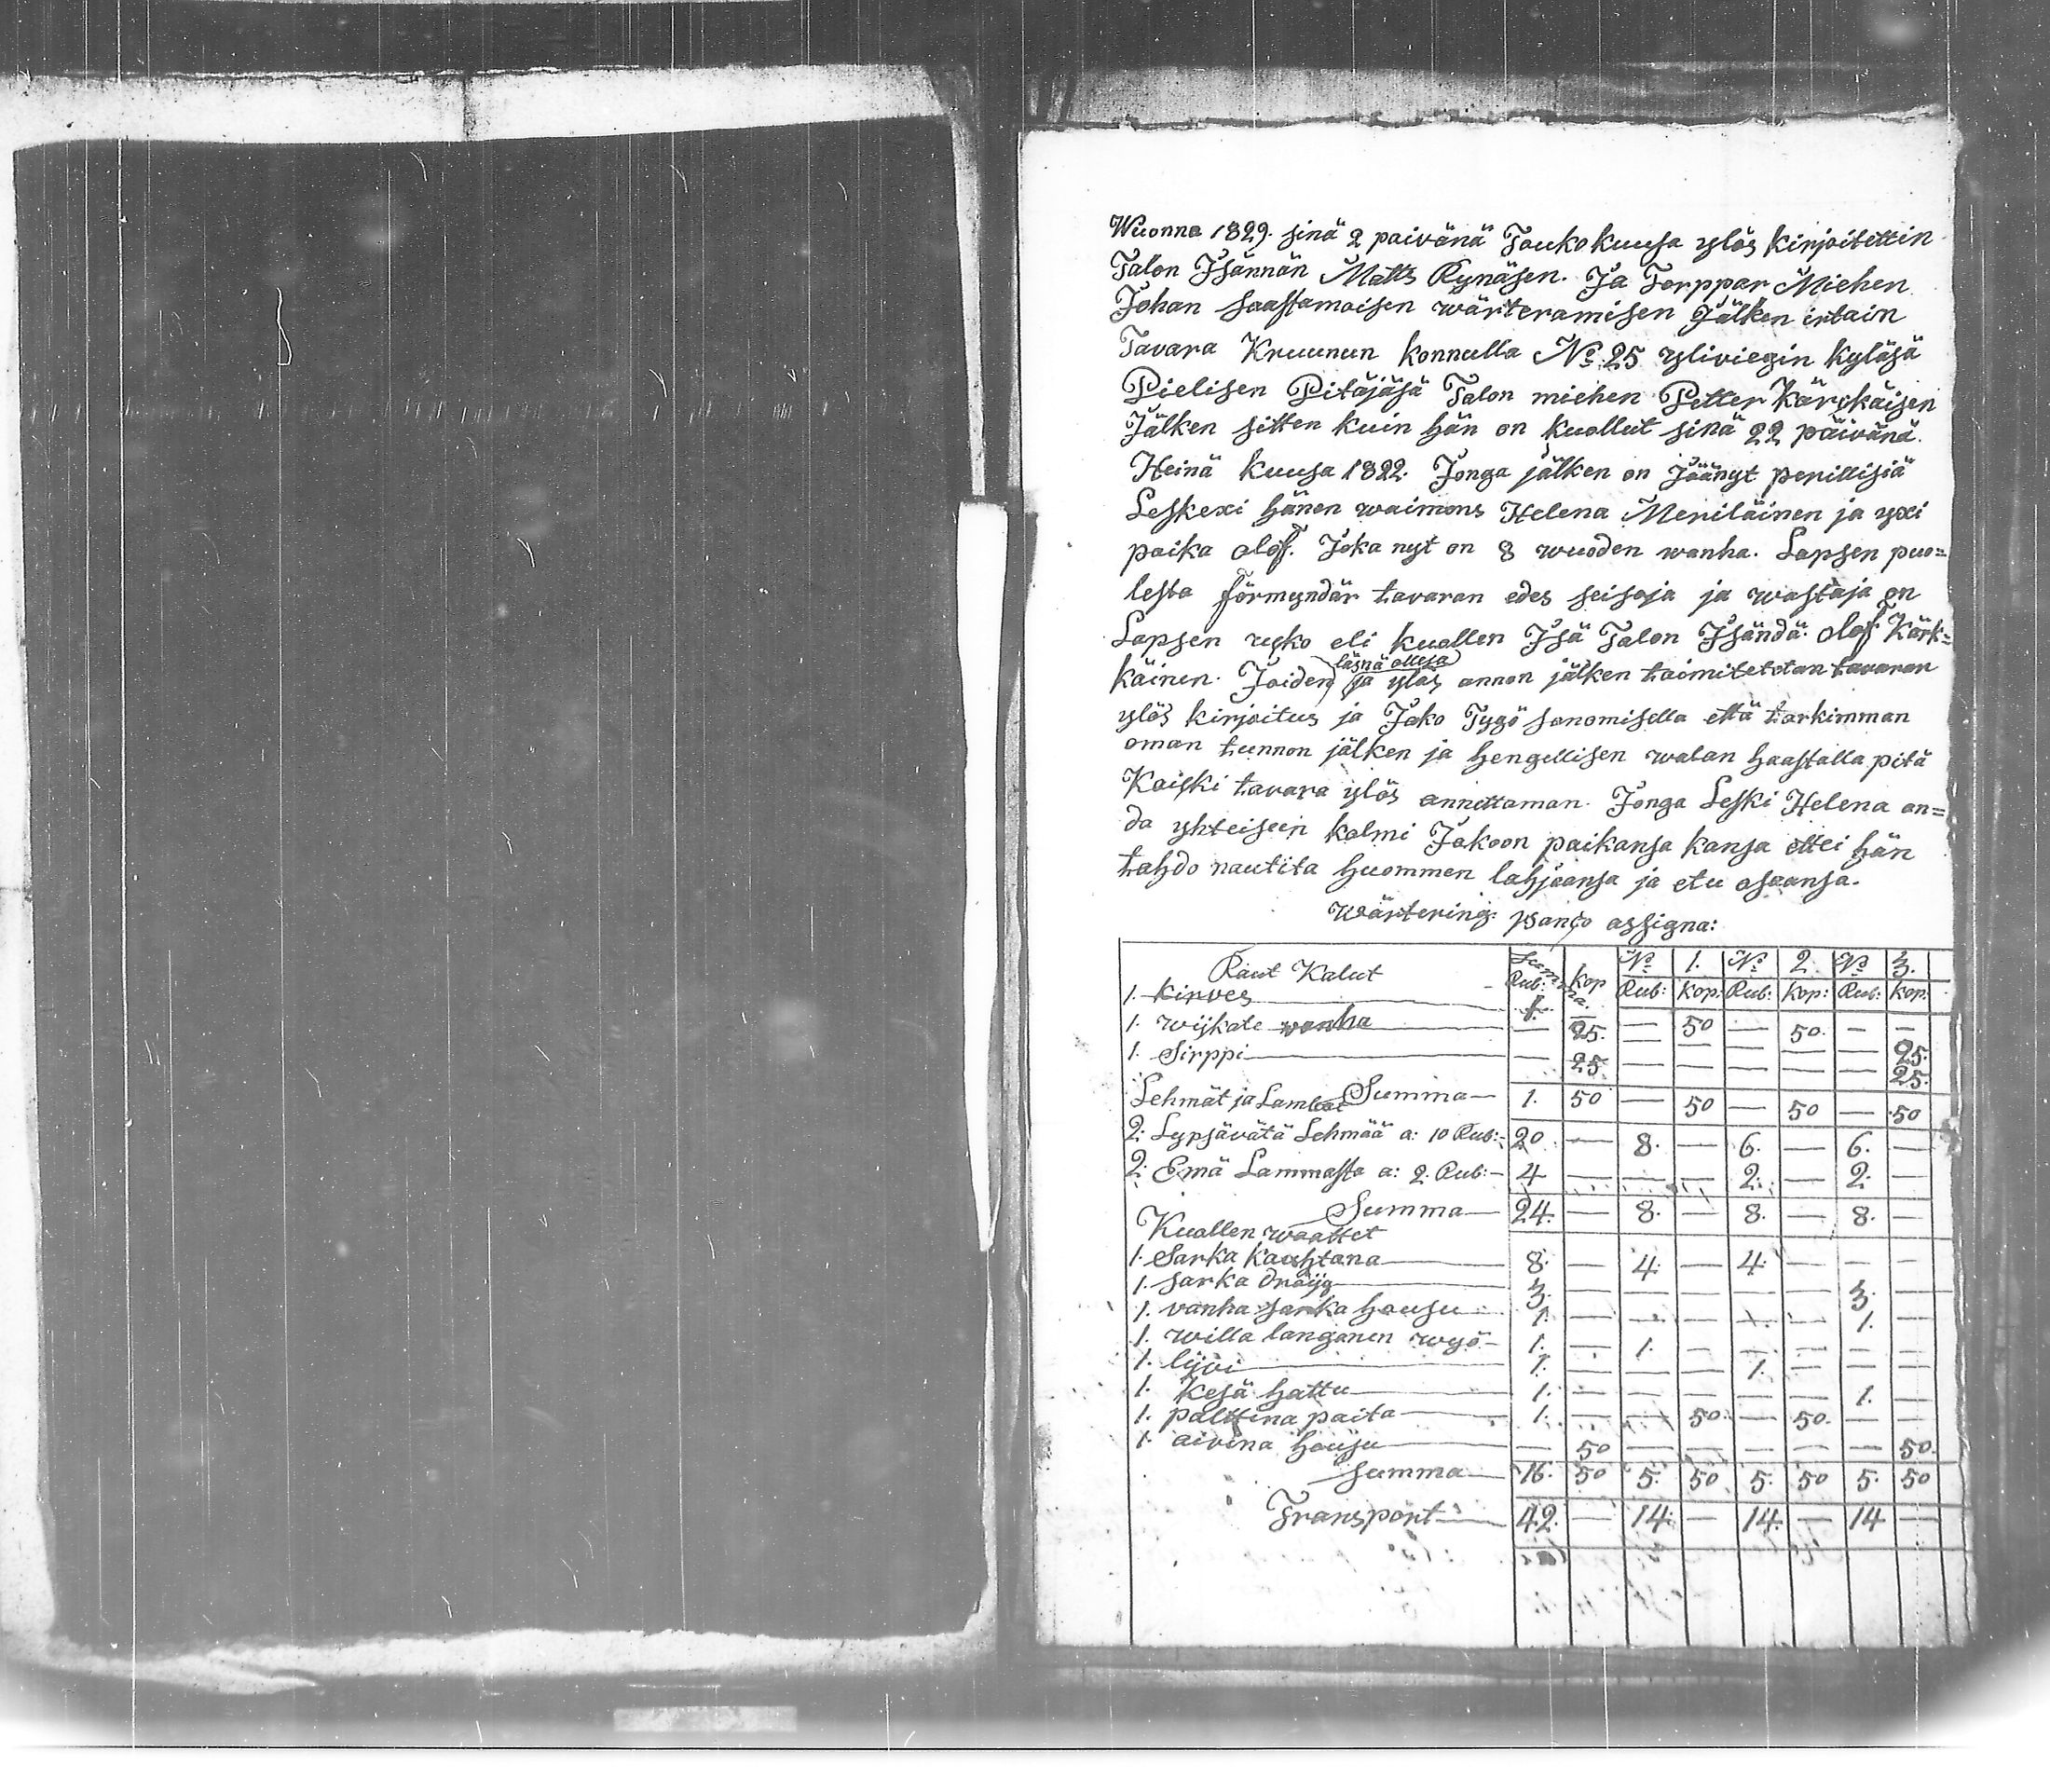 Wuonna 1829. sinä 2 paivänä Toukokuusa ylös kirjoitettin
Talon Isännän Matts Rynäsen. Ja Torppar Miehen
Johan Saastamoisen wärteramisen Jälken irtain
Tavara Kruunun konnulla No 25 yliviegin kyläsä
Pielisen Pitäjäsä Talon miehen Petter Kärckäisen
Jälken sitten kuin hän on kuollut sinä 22 päivänä.
Heinä kuusa 1822. Jonga jälken on Jäänyt perillisiä
Leskexi hänen waimons Helena Meriläinen ja yxi
poika olof. Joka nyt on 8 wuoden wanha. Lapsen puo=
lesta förmyndär tavaran edes seisoja ja wastaja on
Lapsen ucko eli kuollen Isä Talon Isändä. Olof Kärk=
käinen. Joiden läsnä ollesa ja ylös annon jälken toimitetetan tavaran
ylös kirjoitus ja Jako Tygö sanomisella että tarkimman
oman tunnon jälken ja hengellisen walan haastalla pitä
Kaicki tavara ylös annettaman. Jonga Leski Helena an=
da yhteiseen kolmi Jakoon poikansa kansa ettei hän
tahdo nautita huommen lahjaansa ja etu osaansa.
wärtering: panco assigna:
Raut Kalut Summa. No 1. No 2 No 3.
Rub: kop Rub: kop: Rub: kop: Rub: kop:
1. kirves 1. — — 50 — 50. — —
1. wijkate wanha — 25. — — — — — 25.
1. Sirppi — 25. — — — — — 25.
Summa 1. 50 — 50 — 50 — 50
Lehmät ja Lambat
2. Lypsävätä Lehmää a: 10 Rub: 20 — 8. — 6. — 6. —
2. Emä Lammasta a: 2. Rub: 4 — — — 2. — 2. —
Summa 24. — 8. — 8. — 8. —
Kuollen waattet
1. Sarka Kaashtana 8. — 4. — 4. — — —
1. sarka 3. — — — — — 3. —
1. vanha sarka housu 1. — — — — — 1. —
1. willa langanen wyö 1. — 1. — — — — —
1. lijvi 1. — — — 1. — — —
1. kesä hattu 1. — — — — — 1. —
1. palttina paita 1. — — 50. — 50. — —
1. aivina housu — 50 — — — — — 50.
Summa 16. 50 5. 50 5. 50 5. 50
Transport 42. — 14. — 14. — 14 —